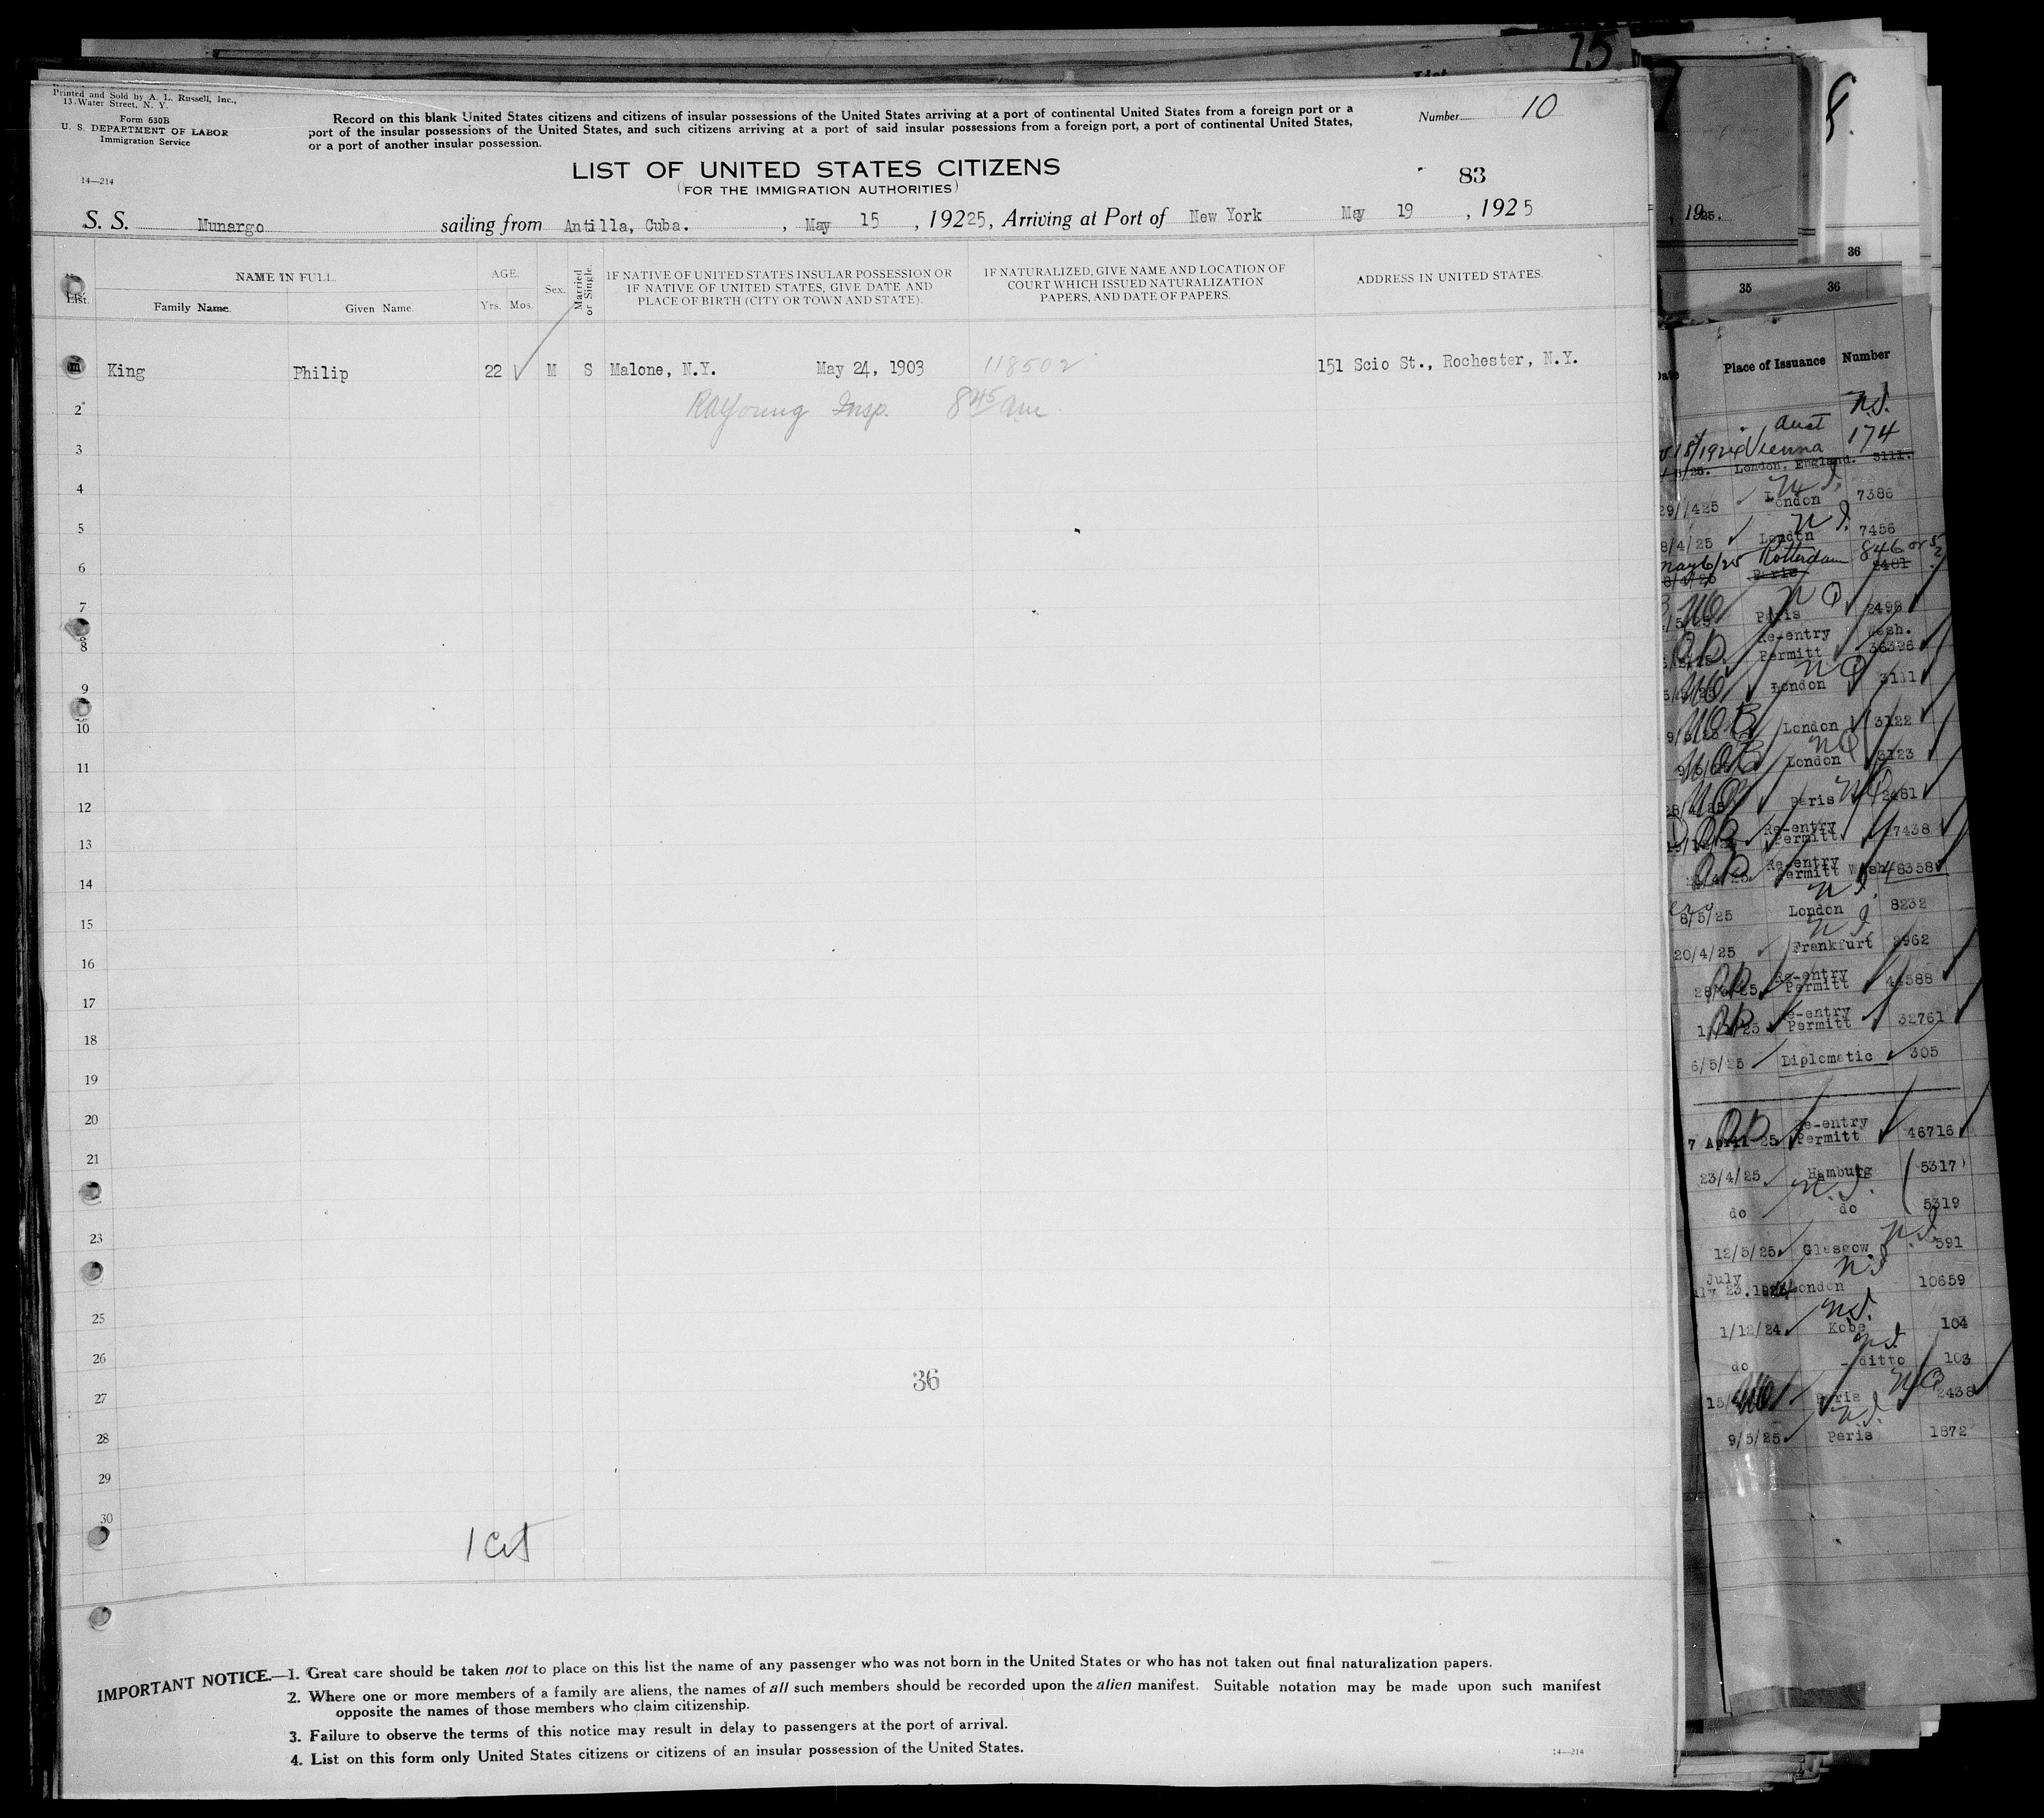 15
List
8.
Printed and Sold by A. L. Russell, Inc.,
13 Water Street, N. Y.
Form 630B
U. S. DEPARTMENT OF LABOR
Immigration Service
14—214
Record on this blank United States citizens and citizens of insular possessions of the United States arriving at a port of continental United States from a foreign port or a
port of the insular possessions of the United States, and such citizens arriving at a port of said insular possessions from a foreign port, a port of continental United States,
or a port of another insular possession.
Number 10
LIST OF UNITED STATES CITIZENS
(FOR THE IMMIGRATION AUTHORITIES)
83
S. S. Munargo sailing from Antilla, Cuba. , May 15 , 19225, Arriving at Port of New York May 19 , 1925
List.
NAME IN FULL.
Family Name.
Given Name.
AGE.
Yrs. Mos.
Sex.
Married
or Single.
IF NATIVE OF UNITED STATES INSULAR POSSESSION OR
IF NATIVE OF UNITED STATES, GIVE DATE AND
PLACE OF BIRTH (CITY OR TOWN AND STATE).
IF NATURALIZED, GIVE NAME AND LOCATION OF
COURT WHICH ISSUED NATURALIZATION
PAPERS, AND DATE OF PAPERS.
ADDRESS IN UNITED STATES.
King Philip 22 ✓ M S Malone, N.Y. May 24, 1903 118502 151 Scio St., Rochester, N.Y.
2 RAYoung Insp. 8 45 am
3
4
5
6
7
8
8
9
10
11
12
13
14
15
16
17
18
19
20
21
23
25
26
27
28
29
30
36
1 Cit
IMPORTANT NOTICE.—1. Great care should be taken not to place on this list the name of any passenger who was not born in the United States or who has not taken out final naturalization papers.
2. Where one or more members of a family are aliens, the names of all such members should be recorded upon the alien manifest. Suitable notation may be made upon such manifest
opposite the names of those members who claim citizenship.
3. Failure to observe the terms of this notice may result in delay to passengers at the port of arrival.
4. List on this form only United States citizens or citizens of an insular possession of the United States.
14—214
, 1925.
36
35 36
Date Place of Issuance Number
N.I.
Aust
18/1924 Vienna 174
London, England. 3111.
N.I.
29//425 London 7386
N I.
8/4/25 London 7456
May 6/25 Rotterdam 846 or 5
8/4/25 Paris 2481
NQ
Paris 2498
Re-entry Wash.
Permitt 36326
NQ
London 3111
London 3122
NQ
London 3123
28/4/25 Paris NQ 2481
Re-entry
Permitt 27438
Re-entry
Permitt Wash 48358
N I.
8/5/25 London 8232
N I.
20/4/25 Frankfurt 2962
Re-entry
Permitt 44588
Re-entry
Permitt 32761
6/5/25 Diplomatic 305
Re-entry
7 April 25 Permitt 46716
23/4/25 Hamburg (5317)
N.I.
do do 5319
N.I.
12/5/25 Glasgow 591
July N I
23.1925 London 10659
N.I.
1/12/24 Kobe 104
N.I.
do - ditto 103
Paris NQ 2438
N.I.
9/5/25 Paris 1872